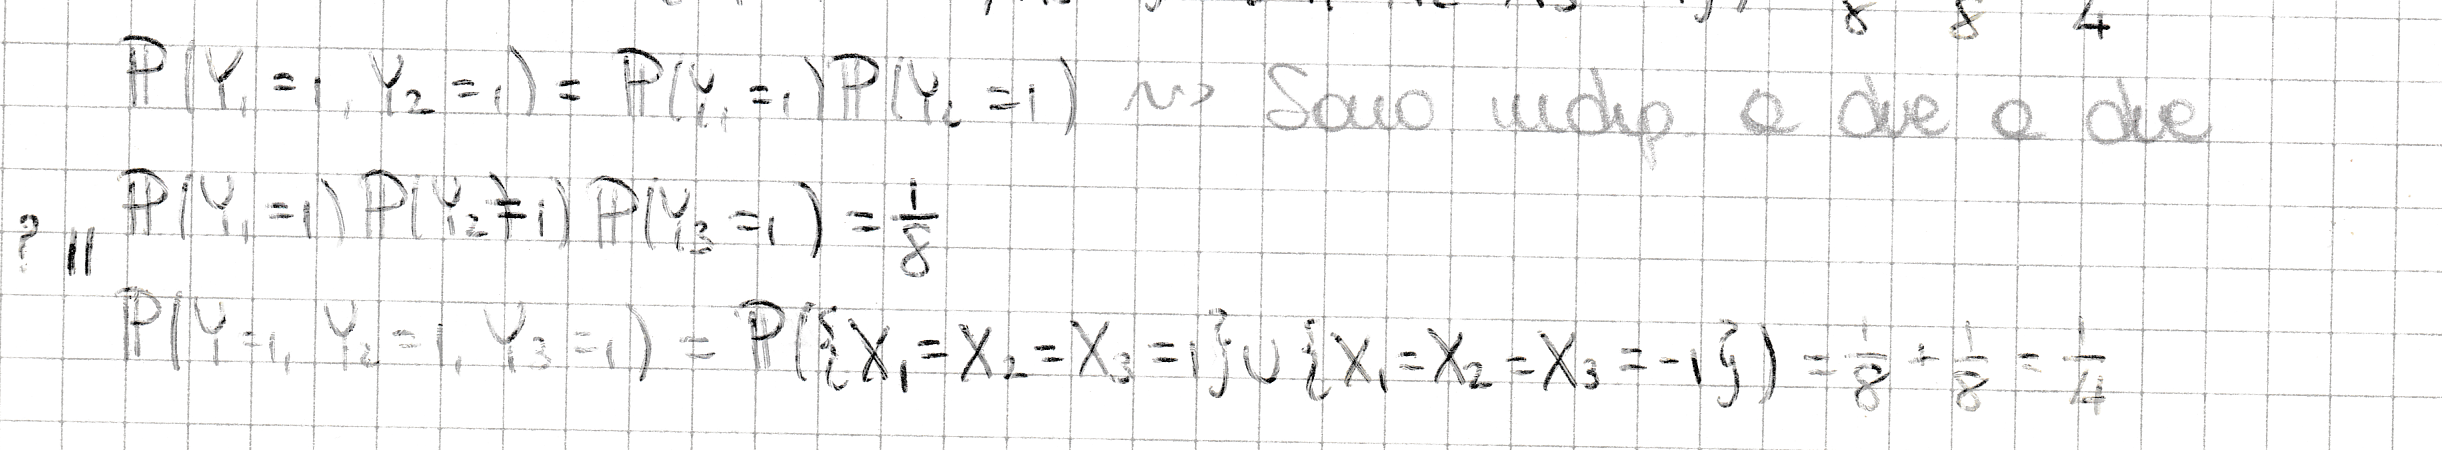 8 8 4
P(Y₁=1, Y₂=1) = P(Y₁=1)P(Y₂=1) ⇝ Sono indip. a due a due
P(Y₁=1) P(Y₂=1) P(Y₃=1) = 1/8
? ||
P(Y=1, Y₂=1, Y₃=1) = P({X₁=X₂=X₃=1}∪{X₁=X₂=X₃=-1}) = 1/8 + 1/8 = 1/4